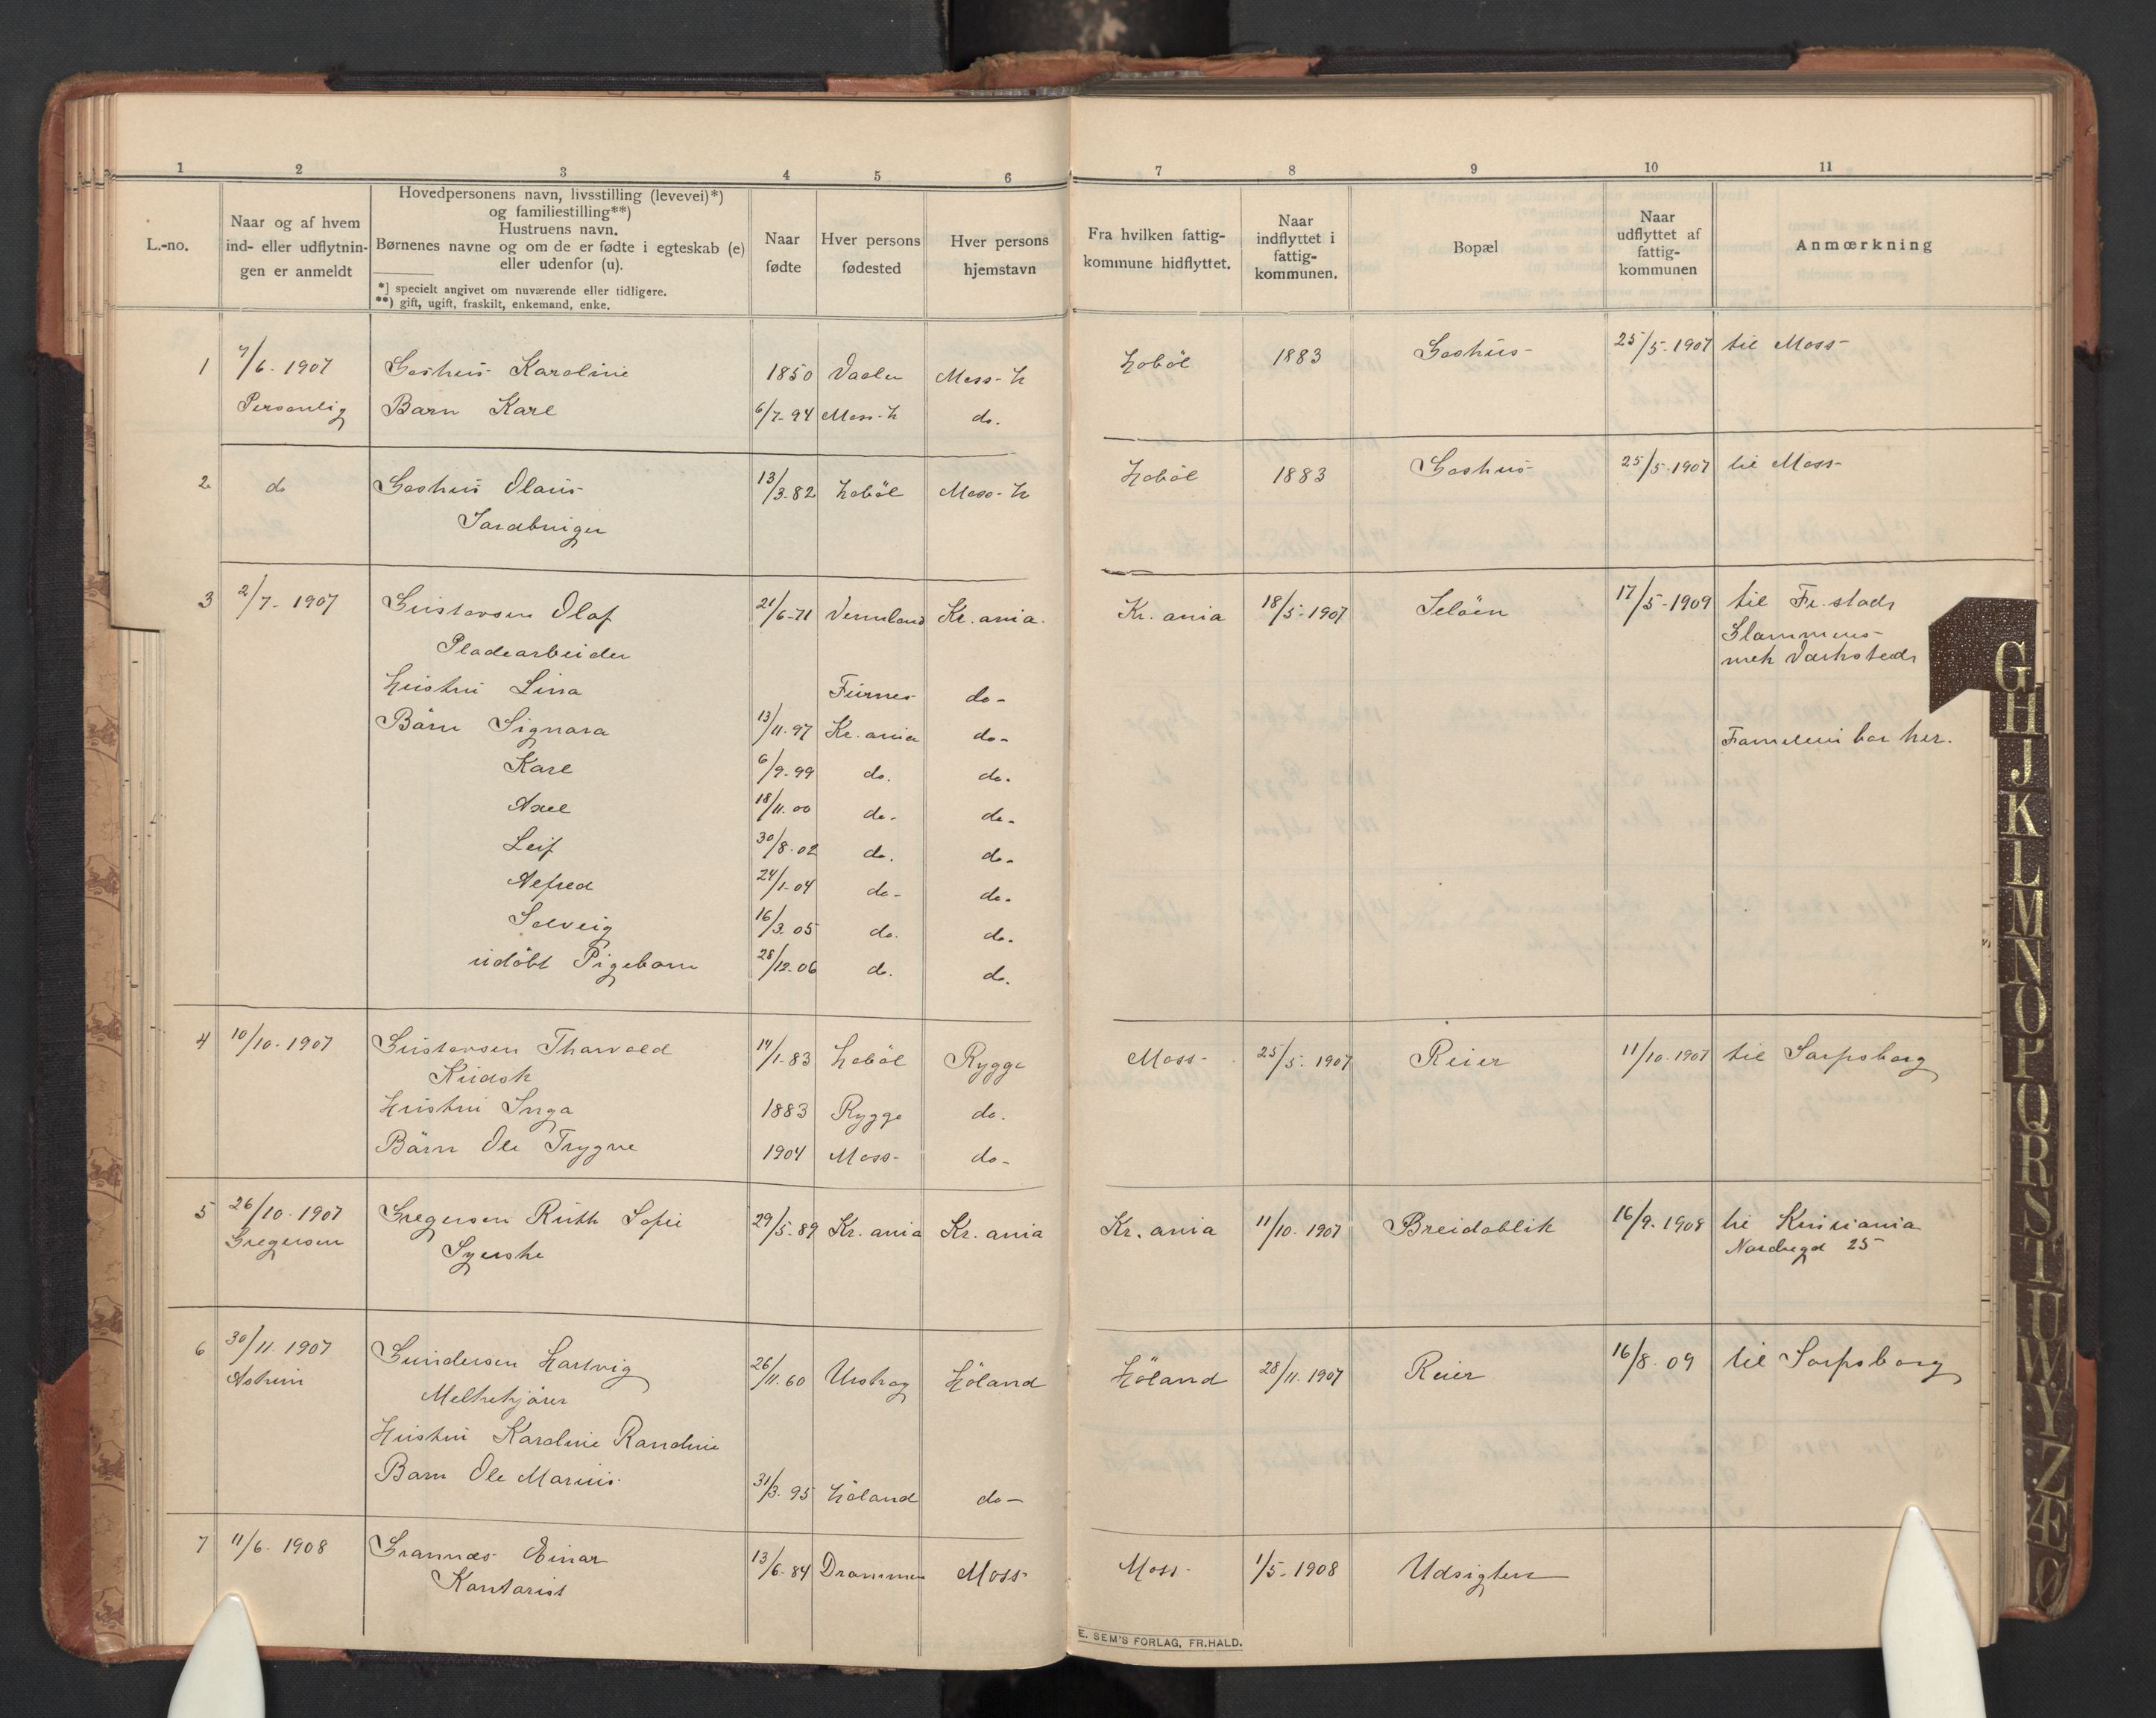 1 2 3 4 5 6 7 8 9 10 11
L.-no.
Naar og af hvem
ind- eller udflytnin-
gen er anmeldt
Hovedpersonens navn, livsstilling (levevei)*)
og familiestilling**)
Hustruens navn.
Børnenes navne og om de er fødte i egteskab (e)
eller udenfor (u).
*) specielt angivet om nuværende eller tidligere.
**) gift, ugift, fraskilt, enkemand, enke.
Naar
fødte
Hver persons
fødested
Hver persons
hjemstavn
Fra hvilken fattig-
kommune hidflyttet.
Naar
indflyttet i
fattig-
kommunen.
Bopæl
Naar
udflyttet af
fattig-
kommunen
Anmærkning
1 7/6. 1907 Gashus Karoline 1850 Vaaler Moss-h Hobøl 1883 Gashus 25/5-1907 til Moss
Personlig Barn Karl 6/7-94 Moss-h do.
2 do Gashus Olaus 13/3-82 Hobøl Moss-h Hobøl 1883 Gashus 25/5-1907 til Moss
Jordbruger
3 2/7-1907 Gustavsen Olaf 21/6-71 Vermland Kr.ania. Kr.ania 18/5-1907 Jeløen 17/5-1909 til Fr.stads
Pladearbeider Glommens
mek Værksteds
Hustru Lina do-
Børn Signora 13/11.97 Kr.ania do-
Familien bor her.
Karl 6/9-99 do. do.
Axel 18/11.00 do. do.
Leif 30/8-02 do. do.
Alfred 24/1-04 do- do.
Solveig 16/3.05 do. do.
udøbt Pigebarn 28/12-06 do. do.
4 10/10-1907 Gustavsen Thorvald 14/1-83 Hobøl Rygge Moss- 25/5-1907 Reier 11/10-1907 til Sarpsborg
Kudsk
Hustru Inga 1883 Rygge do.
Børn Ole Trygve 1904 Moss- do-
5 26/10-1907 Gregersen Ruth Sofie 29/5-89 Kr.ania Kr.ania Kr.ania 11/10-1907 Breidablik 16/9-1908 til Kristiania
Gregersen Syerske Nordbygd 25
6 30/11.1907 Gundersen Hartvig 26/11.60 Urskog Høland Høland 28/11.1907 Reier 16/8-09 til Sarpsborg
Melkekjører
Hustru Karoline Randine
Barn Ole Marius. 31/3.95 Høland do-
7 11/6-1908 Grannæs Einar 13/6-84 Drammen Moss Moss- 1/5-1908 Udsigten
Kontorist
E. SEM'S FORLAG, FR.HALD.
G
H
J
K
L
M
N
O
P
Q
R
S
T
U
W
Y
Z
Æ
Ø